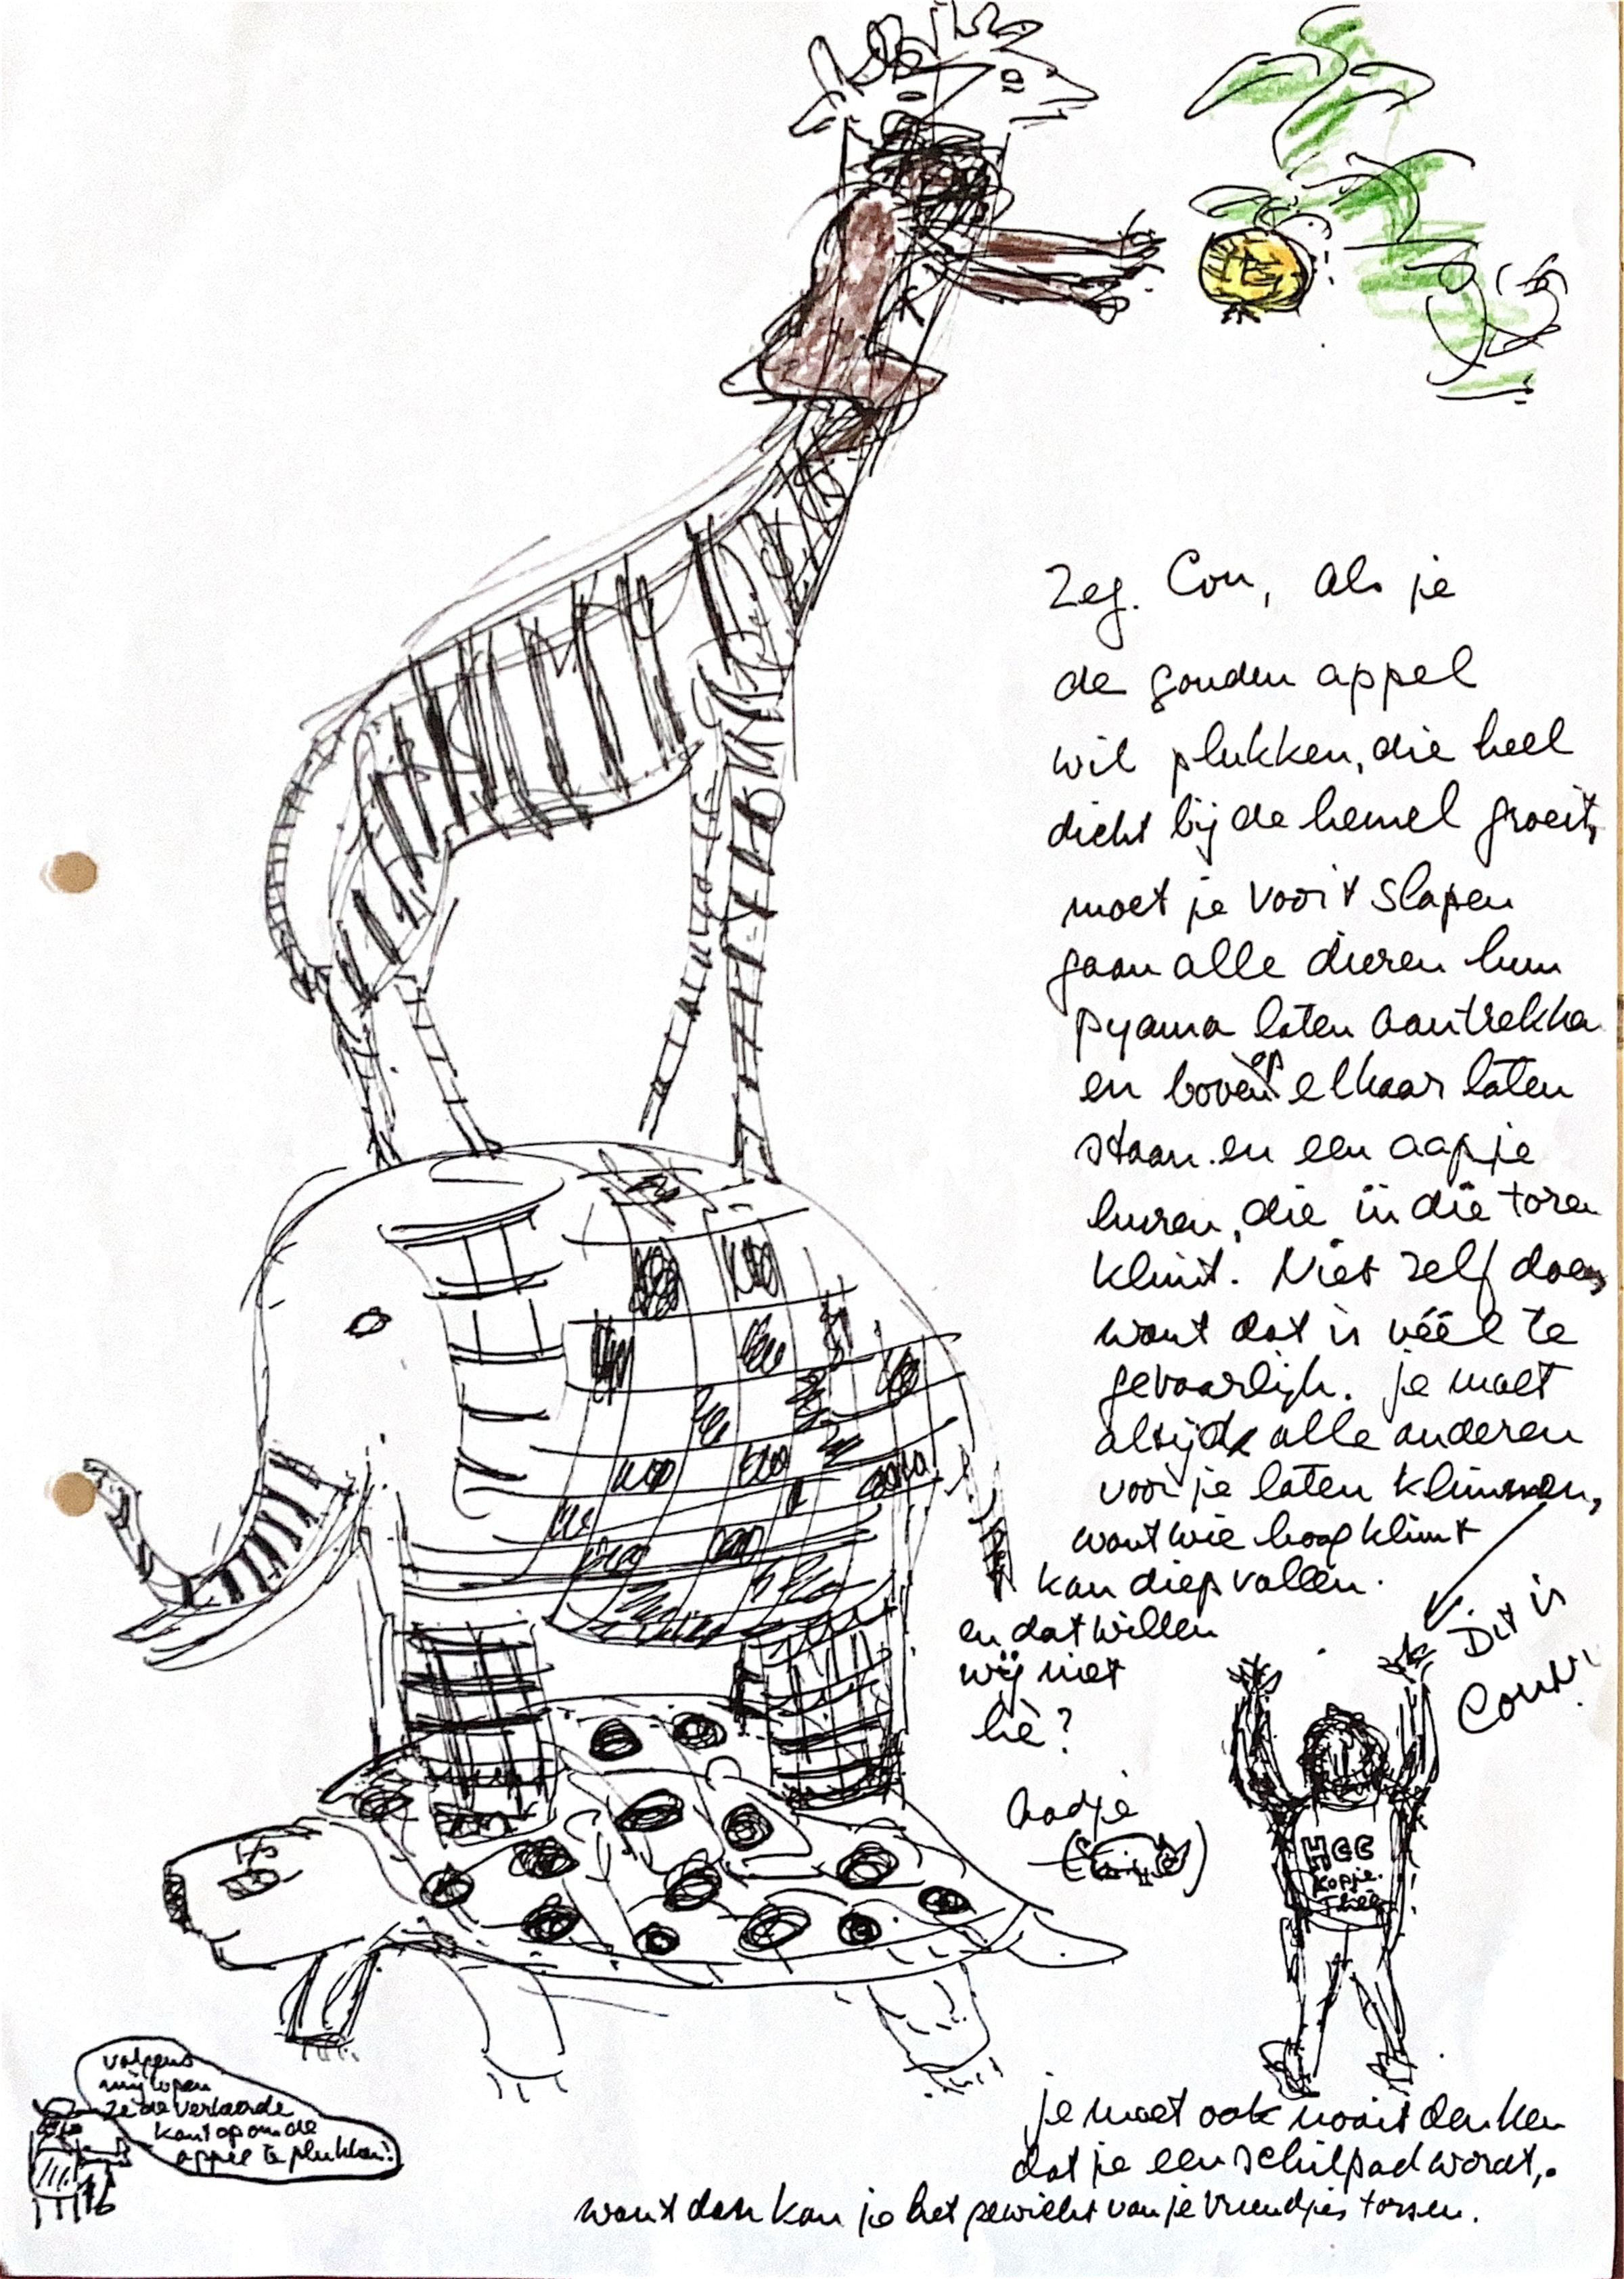 Zeg. Con, als je
de gouden appel
wil plukken, die heel
dicht bij de hemel groeit,
moet je voor 't slapen
gaan alle dieren hun
pyama laten aantrekken
en boven op elkaar laten
staan. en een aapje
huren, die in die toren
klimt. Niet zelf doen,
want dat is véél te
gevaarlijk. je moet
altijd alle anderen
voor je laten klimmen,
want wie hoog klimt
kan diep vallen.
en dat willen
wij niet
hè?
Aadje
Dit is
Conn!
HEE
kopje.
Thee
volgens
mij lopen
ze de verkeerde
kant op om de
appel te plukken!
je moet ook nooit denken
dat je een schilpad wordt,.
want dan kan je het gewicht van je vriendjes torsen.